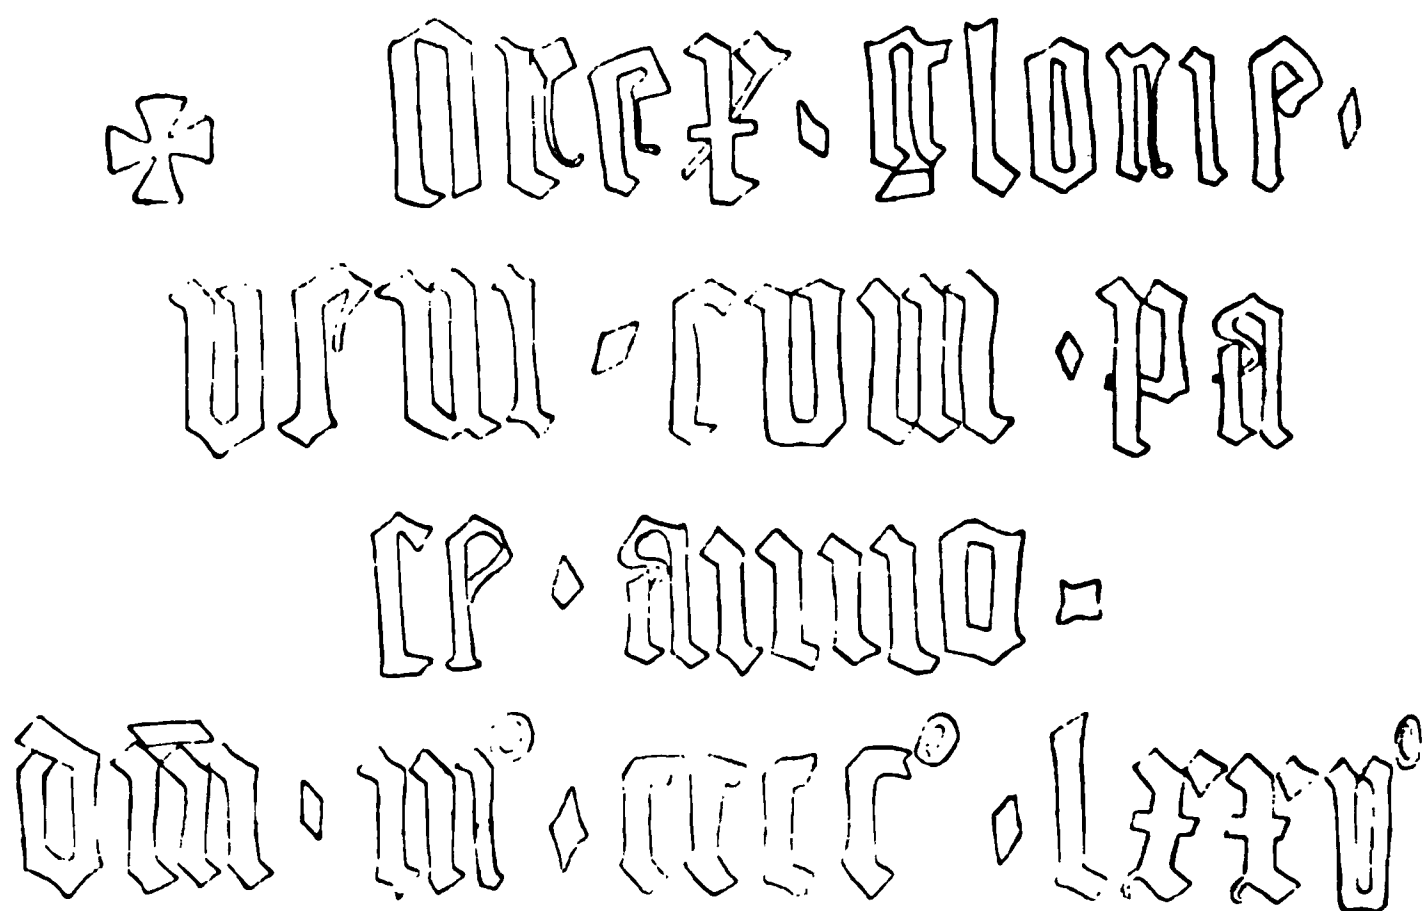 ✠ Orex · glorie ·
veni · cum · pa
ce · anno ·
dm̄ · m° · cccc° · lxxv°